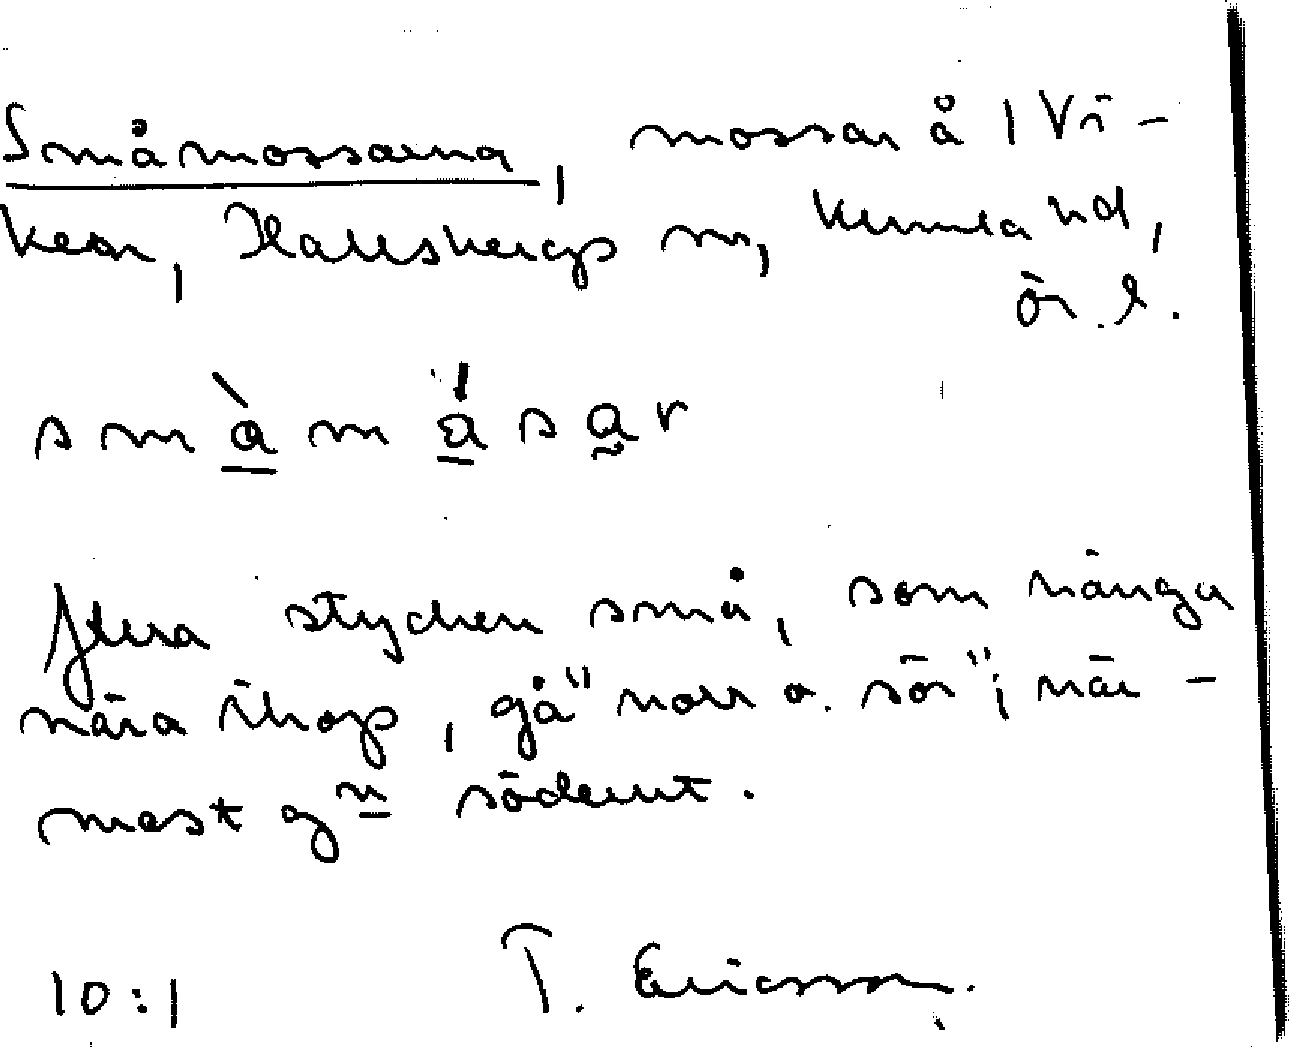 Småmossarna, mossar å 1 Vi-
ken, Hallsbergs sn, Kumla hd,
Ör. l.
småmåsar
flera stycken små, som hänga
nära ihop, gå "norr o. sör"; när-
mast gn söderut.
10:1 T. Ericsson.